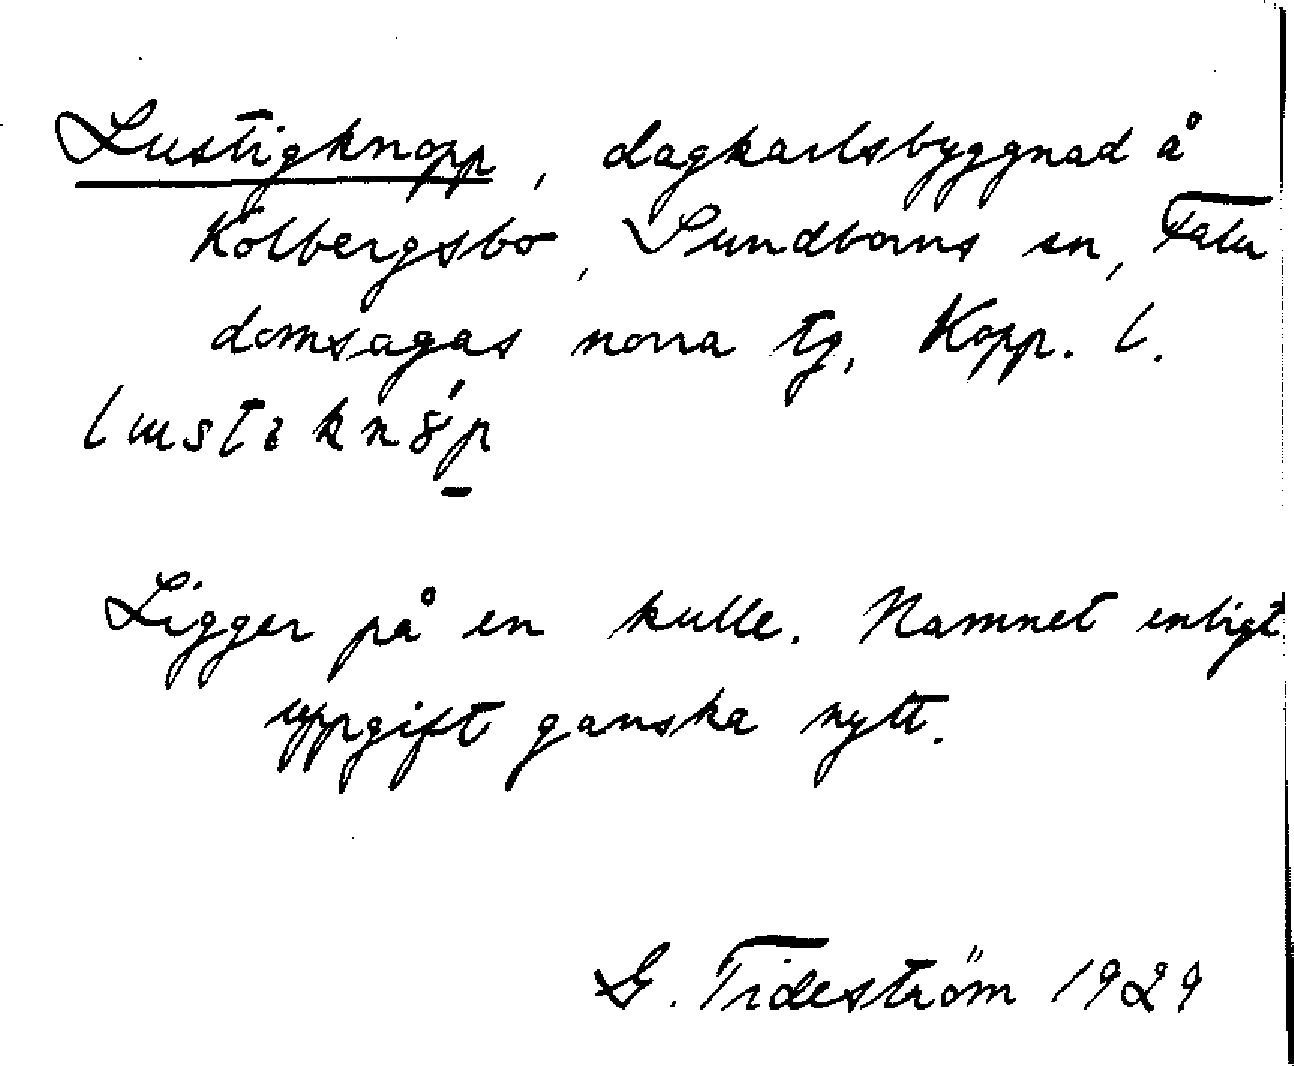 Lustigknopp, dagkarlsbyggnad å
Kolbergsbo, Sundborns sn, Falu
domsagas norra tg, Kopp. l.
Ligger på en kulle. Namnet enligt
uppgift ganska nytt.
G. Tideström 1929